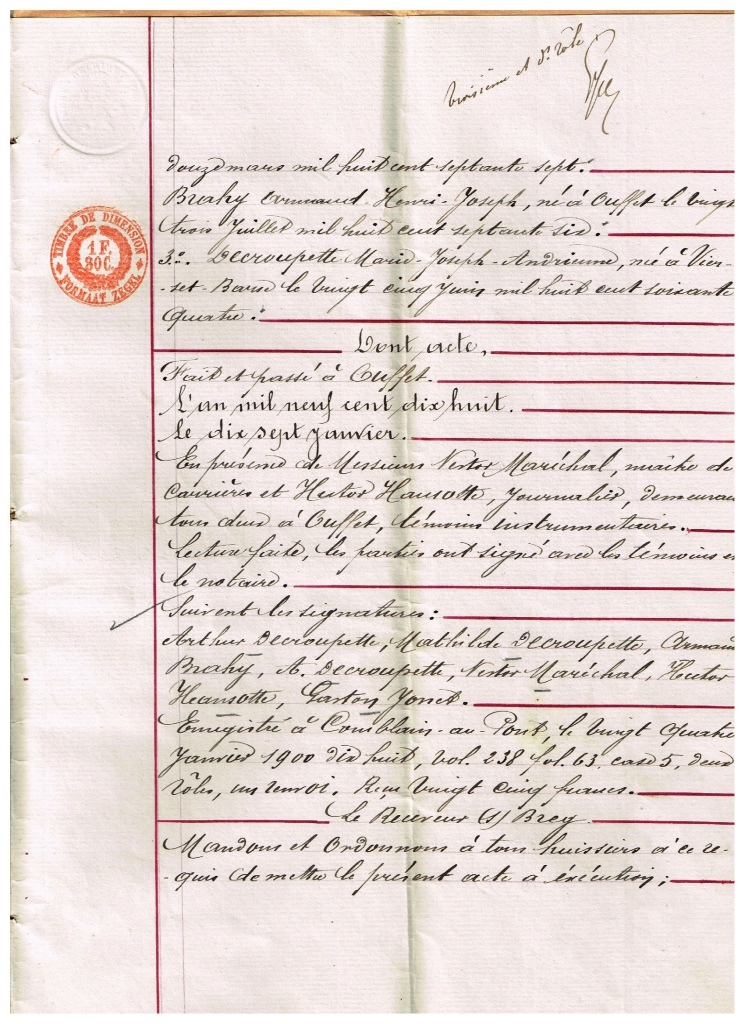 troisième et dr rôle
douze mars mil huit cent septante sept.
Brahy Armand Henri-Joseph, né à Ouffet le vingt
trois Juillet mil huit cent septante six.
3°. Decroupette Marie-Joseph-Andrienne, née à Vier-
-set-Barse le vingt cinq Juin mil huit cent soixante
quatre.
Dont acte,
Fait et passé à Ouffet.
L'an mil neuf cent dix huit.
Le dix sept janvier.
En présence de Messieurs Nestor Maréchal, maître de
carrières et Hector Hansotte, Journalier, demeurant
tous deux à Ouffet, témoins instrumentaires.
Lecture faite, les parties ont signé avec les témoins et
le notaire.
Suivent les signatures:
Arthur Decroupette, Mathilde Decroupette, Armand
Brahy, A. Decroupette, Nestor Maréchal, Hector
Heansotte, Gaston Jonet.
Enregistré à Comblain-au-Pont, le vingt quatre
Janvier 1900 dix huit, vol. 238 fol. 63, case 5, deux
rôles, un renvoi. Reçu vingt cinq francs.
Le Receveur (s) Brey
Mandons et Ordonnons à tous huissiers à ce re-
-quis de mettre le présent acte à éxécution;
TIMBRE DE DIMENSION
1 F.
80C.
FORMAAT ZEGEL